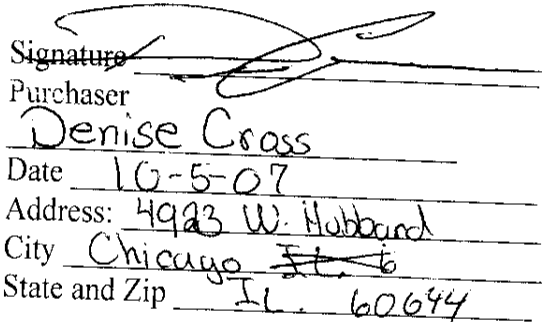 Signature
Purchaser
Denise Cross
Date 10-5-07
Address: 4923 W. Hubbard
City Chicago IL. 6
State and Zip IL. 60644